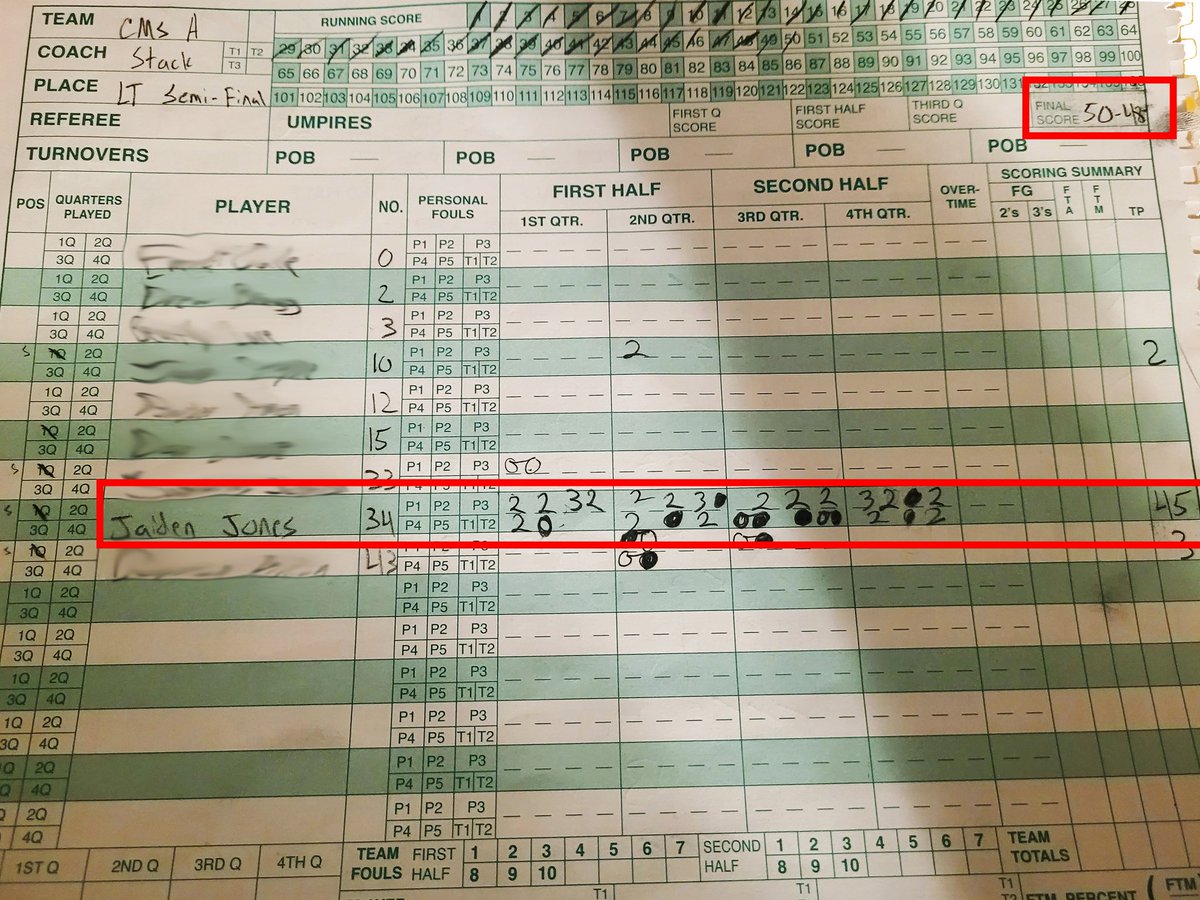 TEAM CMS A RUNNING SCORE 1 2 3 4 5 6 7 8 9 10 11 12 13 14 15 16 17 18 19 20 21 22 23 24 25 26 27 28
COACH Stack T1 T2 T3 29 30 31 32 33 34 35 36 37 38 39 40 41 42 43 44 45 46 47 48 49 50 51 52 53 54 55 56 57 58 59 60 61 62 63 64
65 66 67 68 69 70 71 72 73 74 75 76 77 78 79 80 81 82 83 84 85 86 87 88 89 90 91 92 93 94 95 96 97 98 99 100
PLACE LT Semi-Final 101 102 103 104 105 106 107 108 109 110 111 112 113 114 115 116 117 118 119 120 121 122 123 124 125 126 127 128 129 130 131
REFEREE UMPIRES FIRST Q SCORE FIRST HALF SCORE THIRD Q SCORE FINAL SCORE 50-48
TURNOVERS POB POB POB POB POB
POS QUARTERS PLAYED PLAYER NO. PERSONAL FOULS FIRST HALF SECOND HALF OVER-TIME SCORING SUMMARY
1ST QTR. 2ND QTR. 3RD QTR. 4TH QTR. FG 2's 3's FTA FTM TP
1Q 2Q P1 P2 P3
3Q 4Q 0 P4 P5 T1 T2
1Q 2Q P1 P2 P3
3Q 4Q 2 P4 P5 T1 T2
1Q 2Q P1 P2 P3
3Q 4Q 3 P4 P5 T1 T2
S 1Q 2Q P1 P2 P3 2
3Q 4Q 10 P4 P5 T1 T2 2
1Q 2Q P1 P2 P3
3Q 4Q 12 P4 P5 T1 T2
1Q 2Q P1 P2 P3
3Q 4Q 15 P4 P5 T1 T2
S 1Q 2Q P1 P2 P3 00
3Q 4Q
S 1Q 2Q P1 P2 P3 2 2 3 2 2 2 3 2 2 2 3 2 2
3Q 4Q Jaiden Jones 34 P4 P5 T1 T2 2 2 2 2 2 45
S 1Q 2Q P1 P2 P3
3Q 4Q 43 P4 P5 T1 T2 3
1Q 2Q P1 P2 P3
3Q 4Q P4 P5 T1 T2
1Q 2Q P1 P2 P3
3Q 4Q P4 P5 T1 T2
1Q 2Q P1 P2 P3
3Q 4Q P4 P5 T1 T2
1Q 2Q P1 P2 P3
3Q 4Q P4 P5 T1 T2
1Q 2Q P1 P2 P3
4Q P4 P5 T1 T2
2Q P1 P2 P3
4Q P4 P5 T1 T2
1ST Q 2ND Q 3RD Q 4TH Q TEAM FOULS FIRST HALF 1 2 3 4 5 6 7 SECOND HALF 1 2 3 4 5 6 7 TEAM TOTALS
8 9 10 8 9 10
T1 T1 T1 FTM PERCENT ( FTM